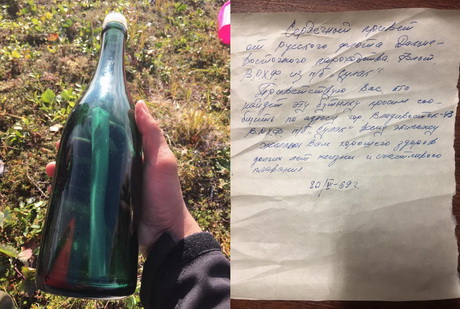 Сердечный привет
от русского флота Дальне-
восточного пароходства. Флот
ВРХФ из п/б "Сулак"
Приветствую Вас, кто
найдет эту бутылку просим соо-
щить по адресу гор. Владивосток-43
ВРХФ п/б Сулак всему экипажу
желаем Вам хорошего здоровья
долгих лет жизни и счастливого
плавания
20/VI-69 г.